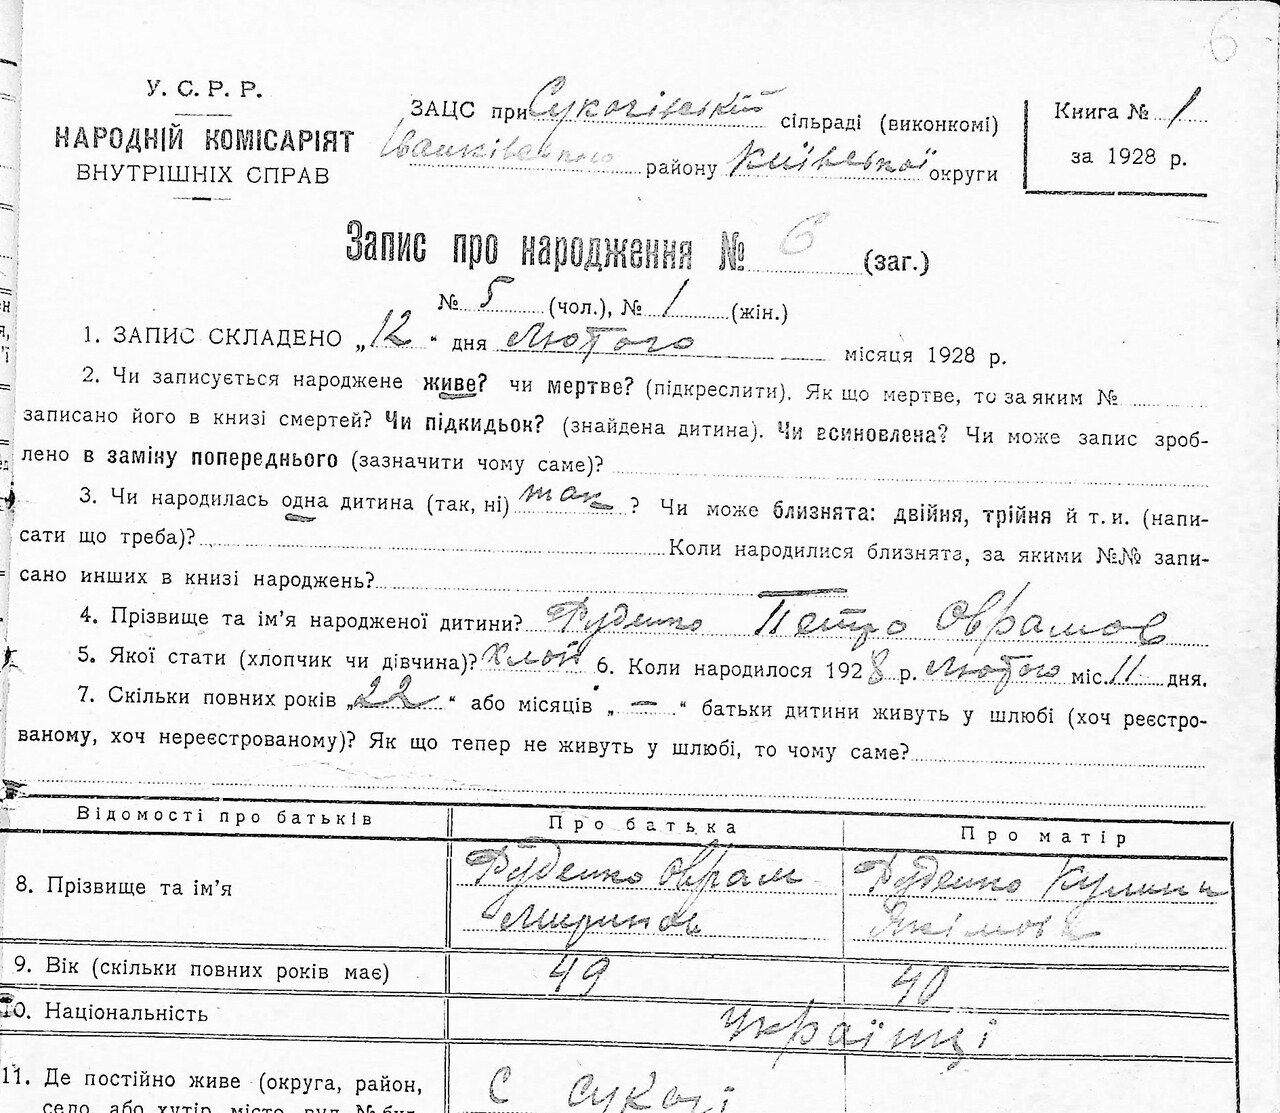 6
У. С. Р. Р.
НАРОДНІЙ КОМІСАРІЯТ
ВНУТРІШНІХ СПРАВ
ЗАЦС при Сукачівській сільраді (виконкомі)
Іванківського району Київської округи
Книга № 1
за 1928 р.
Запис про народження № 6 (заг.)
№ 5 (чол.), № 1 (жін.)
1. ЗАПИС СКЛАДЕНО „12“ дня Лютого місяця 1928 р.
2. Чи записується народжене живе? чи мертве? (підкреслити). Як що мертве, то за яким №
записано його в книзі смертей? Чи підкидьок? (знайдена дитина). Чи всиновлена? Чи може запис зроб-
лено в заміну попереднього (зазначити чому саме)?
3. Чи народилась одна дитина (так, ні) так ? Чи може близнята: двійня, трійня й т. и. (напи-
сати що треба)? Коли народилися близнята, за якими №№ запи-
сано инших в книзі народжень?
4. Прізвище та ім’я народженої дитини? Руденко Петро Оврамов
5. Якої стати (хлопчик чи дівчина)? хлоп 6. Коли народилося 1928 р. Лютого міс. 11 дня.
7. Скільки повних років „22“ або місяців „ — “ батьки дитини живуть у шлюбі (хоч реєстро-
ваному, хоч нереєстрованому)? Як що тепер не живуть у шлюбі, то чому саме?
Відомості про батьків
Про батька
Про матір
8. Прізвище та ім’я
Руденко Оврам
Руденко Кулина
Якімова
9. Вік (скільки повних років має)
49
40
10. Національність
Українці
11. Де постійно живе (округа, район,
село, або хутір, місто, вул. № буд.
С Сукачі